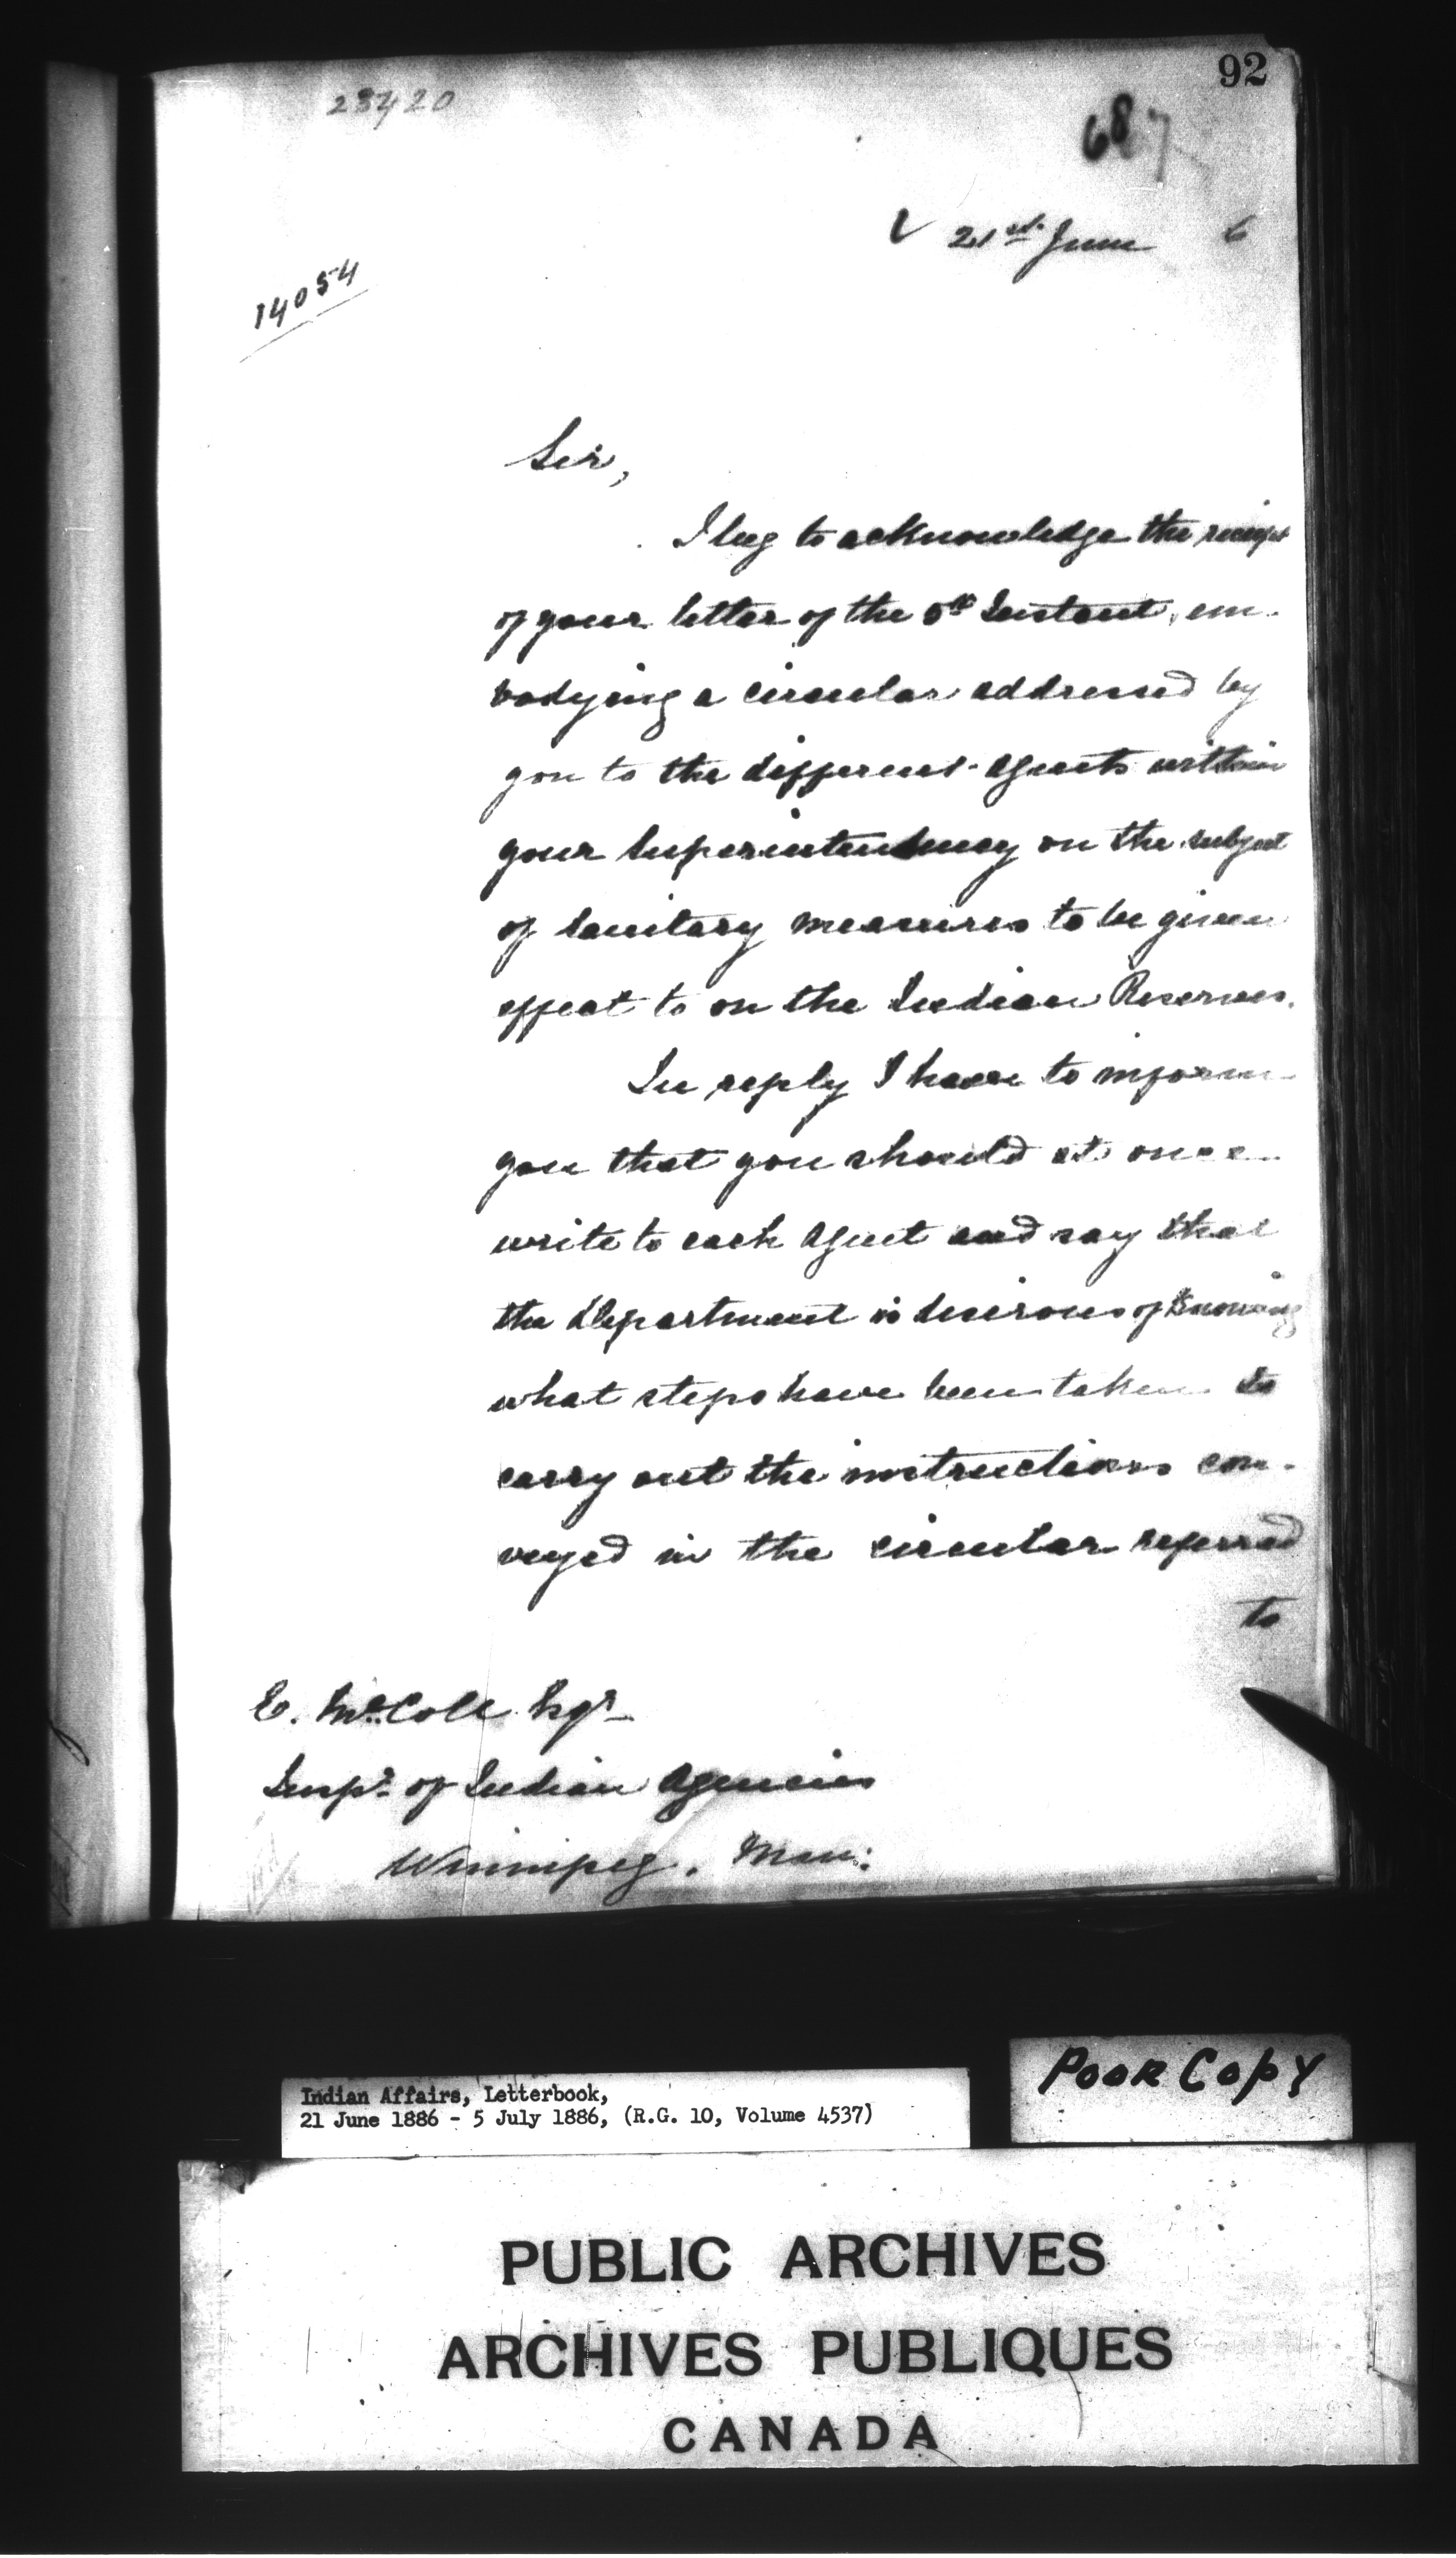 92
23420
687
21st June 6
14054
Sir,
I beg to acknowledge the receipt
of your letter of the 5th Instant, em-
bodying a circular addressed by
you to the different Agents within
your Superintendency on the subject
of Sanitary measures to be given
effect to on the Indian Reserves.
In reply I have to inform
you that you should at once
write to each Agent and say that
the Department is desirous of knowing
what steps have been taken to
carry out the instructions con-
veyed in the circular referred
to
E. McColl Esqr
Inspr. of Indian Agencies
Winnipeg. Man:
Poor Copy
Indian Affairs, Letterbook,
21 June 1886 - 5 July 1886, (R.G. 10, Volume 4537)
PUBLIC ARCHIVES
ARCHIVES PUBLIQUES
CANADA